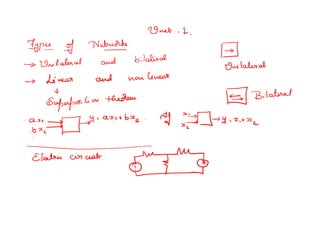 Unit - 1.
Types of Networks
→ Unilateral and bilateral
Unilateral
→ Linear and non linear
↓
Superposition theorem
Bilateral
ax₁ → y = ax₁ + bx₂ . If x₁ → y = x₁ + x₂
bx₂ x₂
Electric circuit.